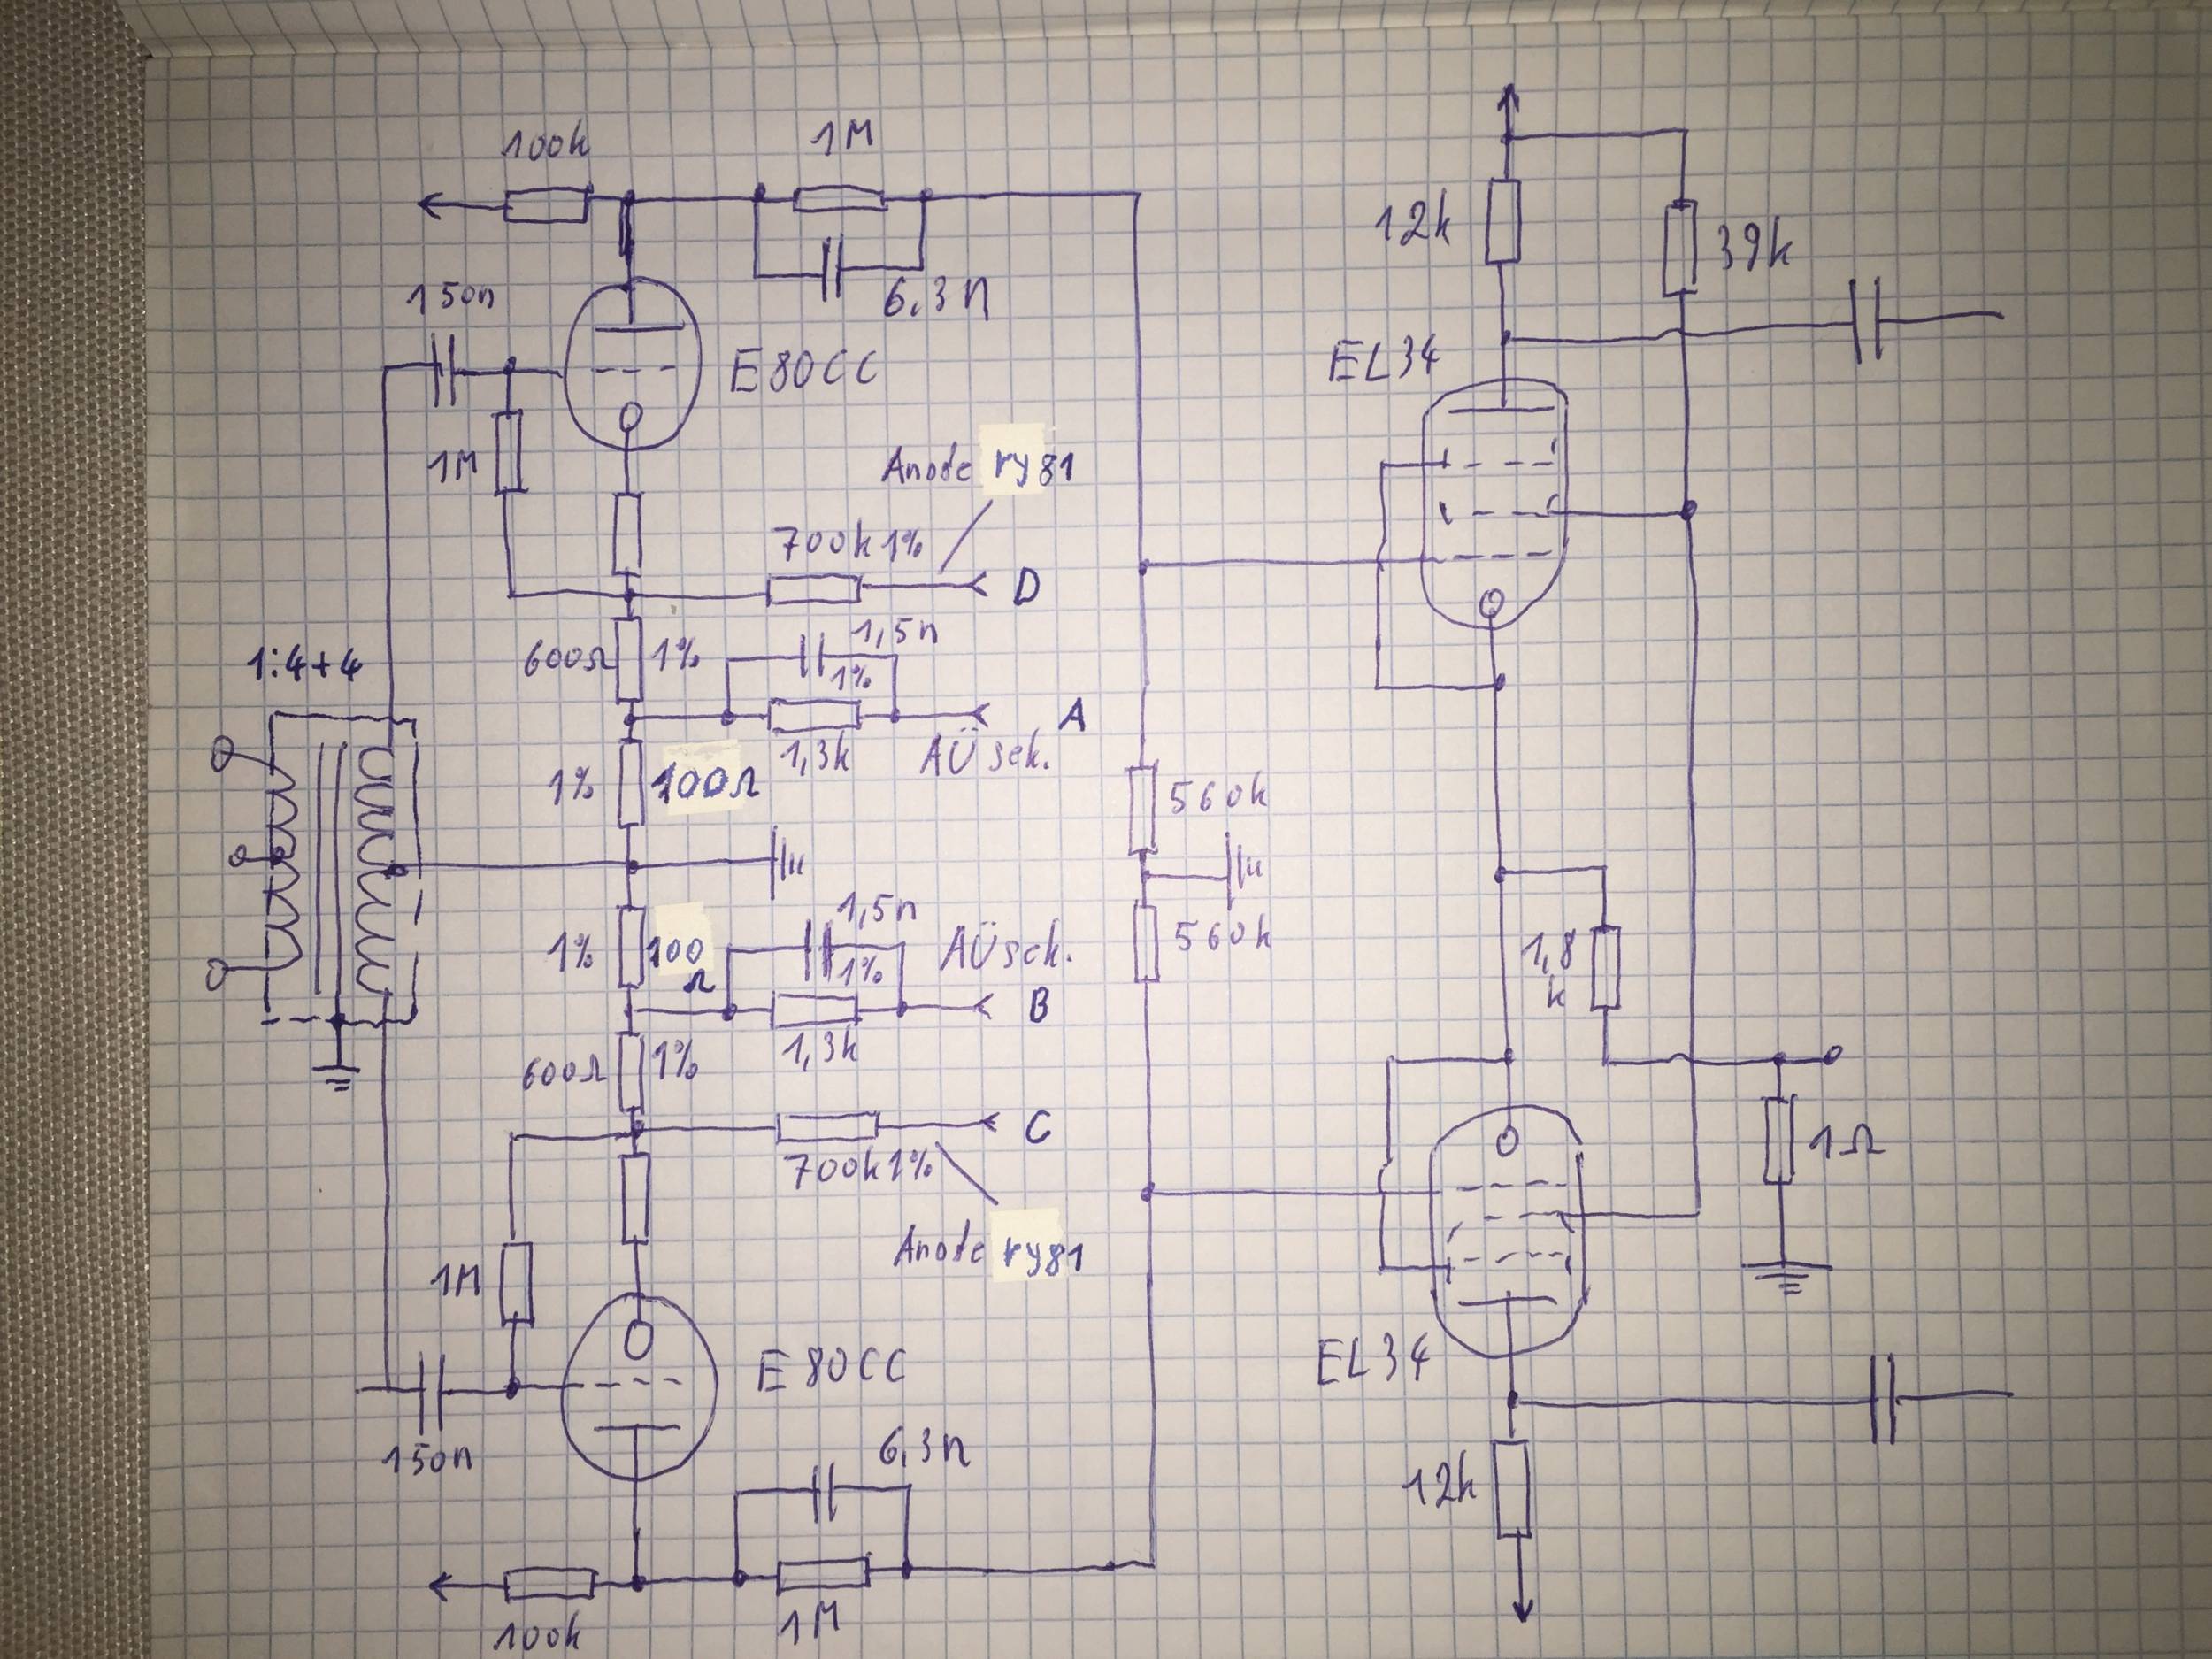 100k
1M
150n
6,3n
E80CC
1M
Anode ry81
700k 1%
D
600Ω 1%
1,5n
1%
A
1,3k
AÜ sek.
1:4+4
1% 100Ω
1% 100
Ω
1,5n
1%
AÜ sek.
B
1,3k
600Ω 1%
C
700k 1%
Anode ry81
1M
E80CC
150n
6,3n
1M
100k
560k
560k
12k
39k
EL34
1,8
k
1Ω
EL34
12k